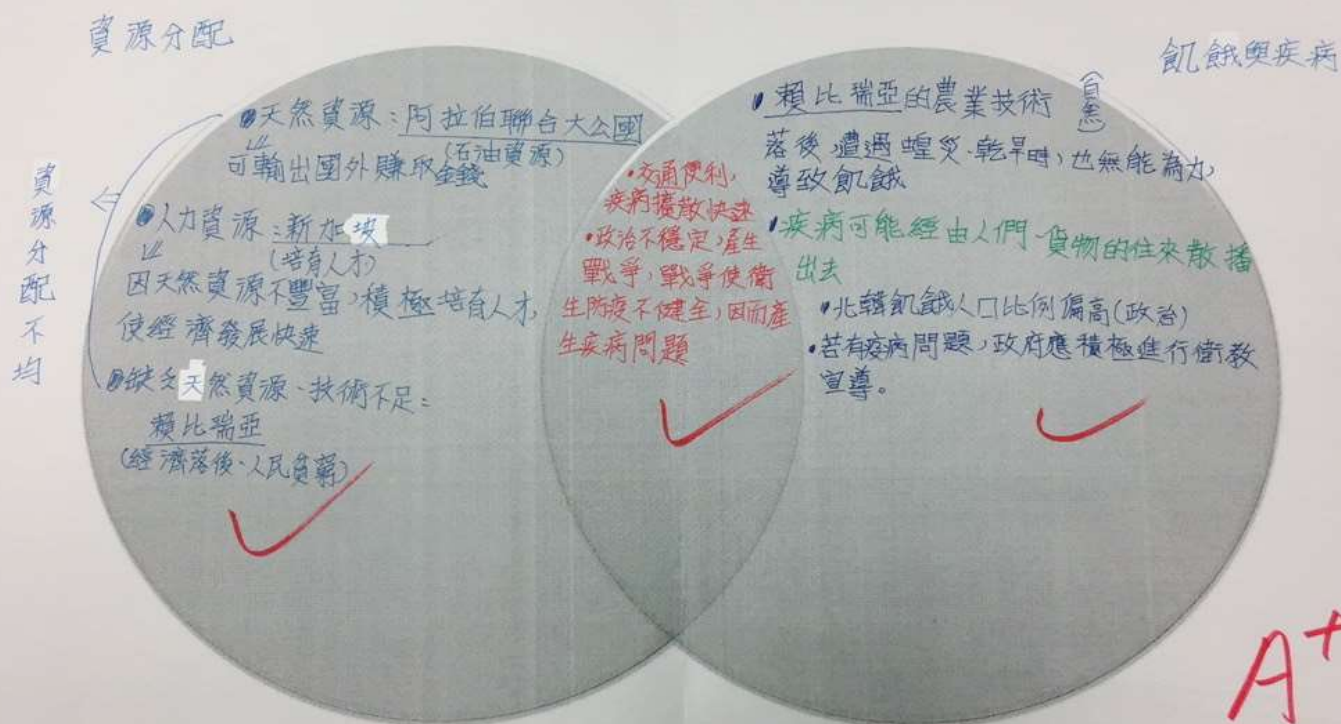 資源分配
飢餓與疾病
資源分配不均
天然資源:阿拉伯聯合大公國
(石油資源)
可輸出國外賺取金錢
人力資源:新加坡
(培育人才)
因天然資源不豐富,積極培育人才,
使經濟發展快速
缺乏天然資源、技術不足:
賴比瑞亞
(經濟落後、人民貧窮)
•交通便利,
疾病擴散快速
•政治不穩定,產生
戰爭,戰爭使衛
生防疫不健全,因而產
生疾病問題
•賴比瑞亞的農業技術
落後,遭遇蝗災、乾旱時,也無能為力,
導致飢餓
•疾病可能經由人們、貨物的往來散播
出去
•北韓飢餓人口比例偏高(政治)
•若有疫病問題,政府應積極進行衛教
宣導。
A+